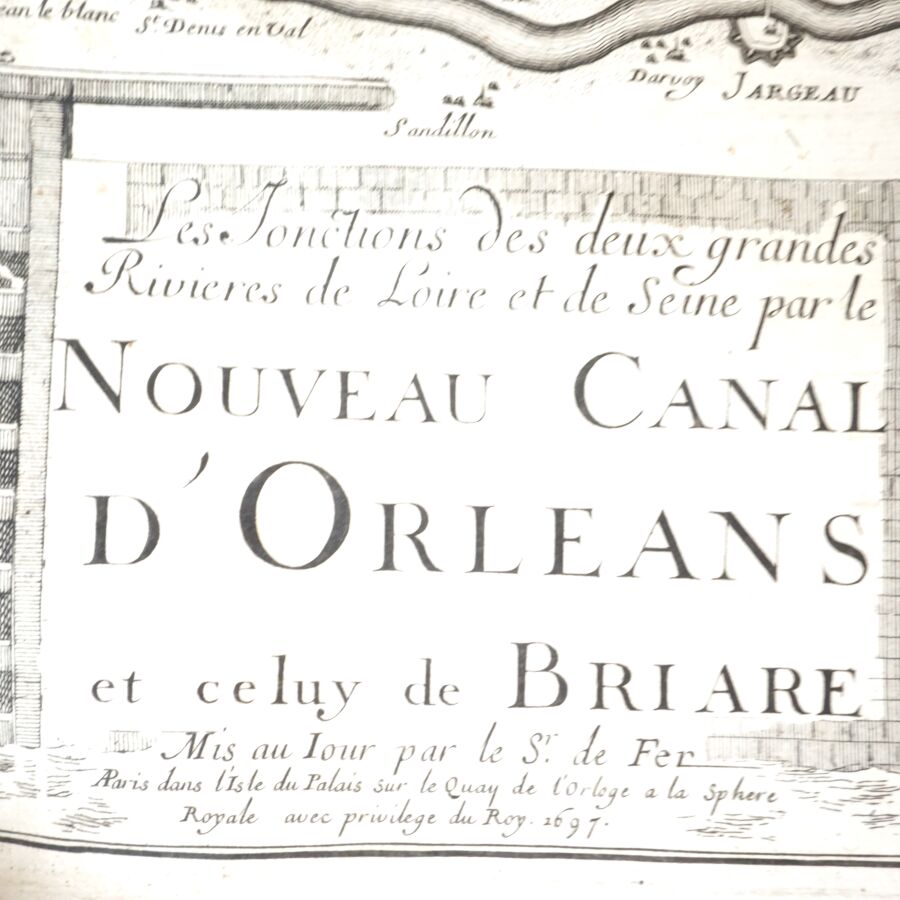 ean le blanc
St Denis en Val
Darvoy
JARGEAU
Sandillon
Les Jonctions des deux grandes
Rivieres de Loire et de Seine par le
NOUVEAU CANAL
D'ORLEANS
et celuy de BRIARE
Mis au Iour par le Sr. de Fer
AParis dans l'Isle du Palais sur le Quay de l'Orloge a la Sphere
Royale avec privilege du Roy. 1697.